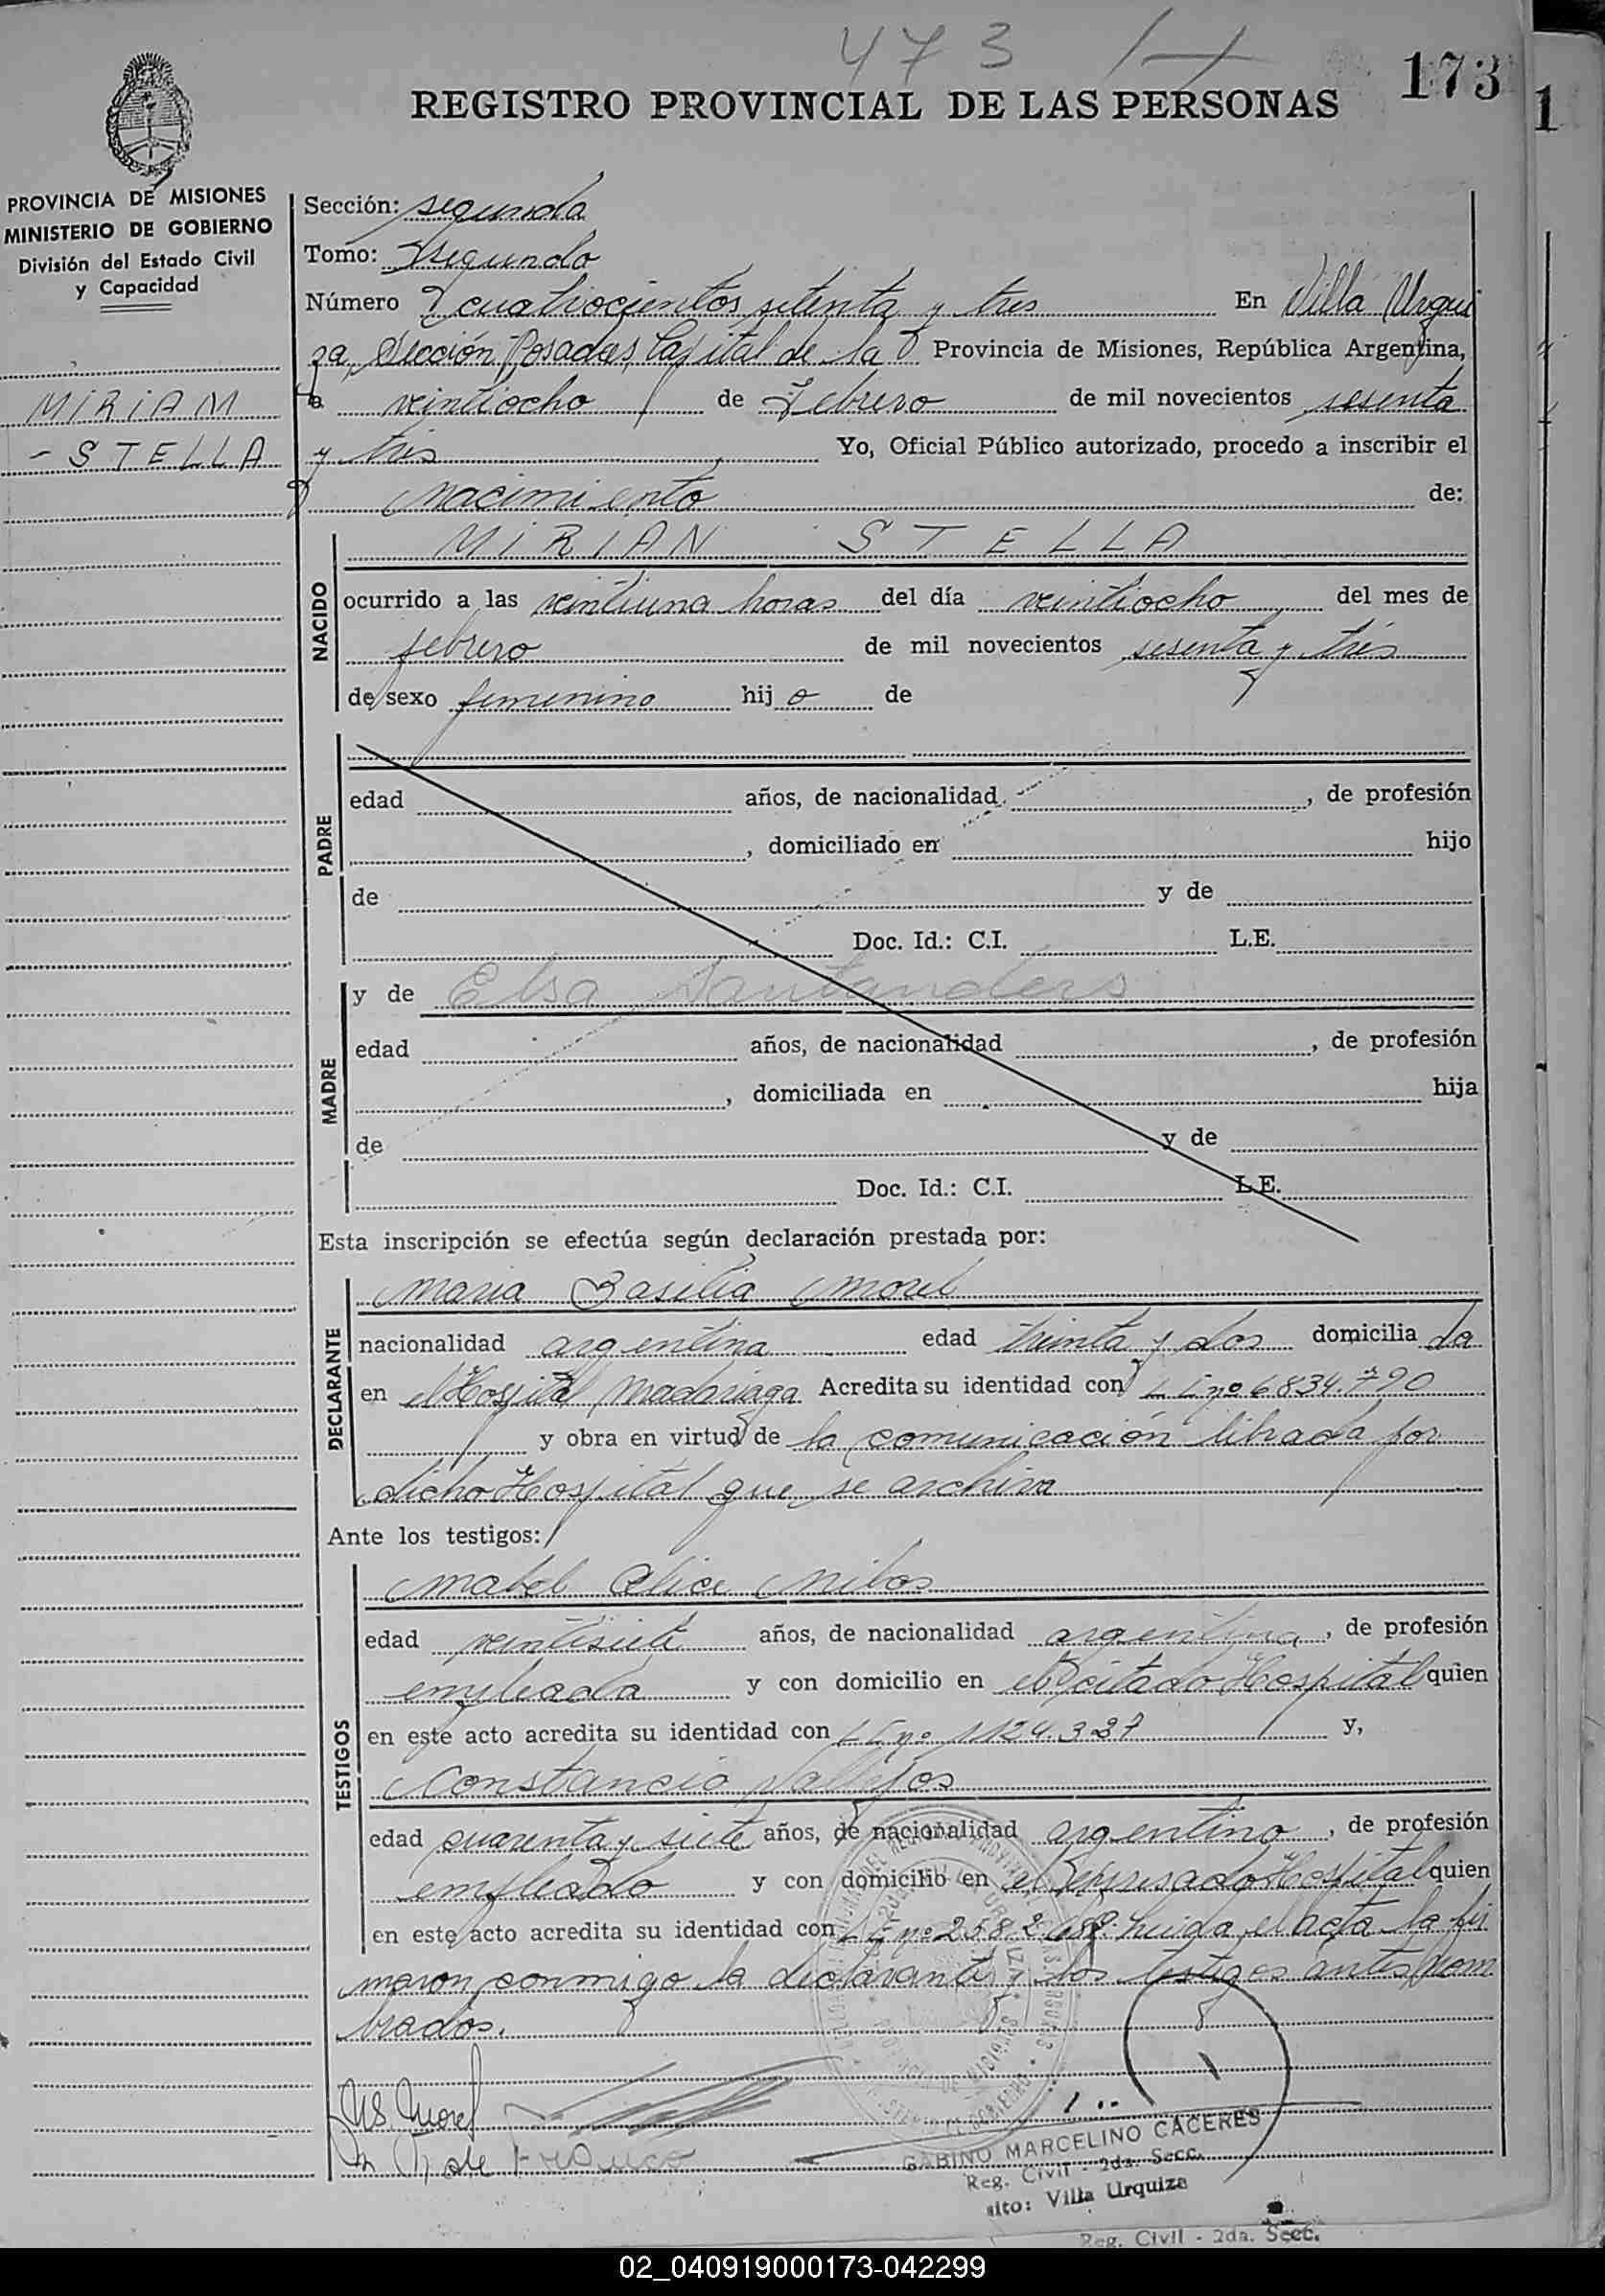 473
173
REGISTRO PROVINCIAL DE LAS PERSONAS
1
PROVINCIA DE MISIONES
MINISTERIO DE GOBIERNO
División del Estado Civil
y Capacidad
MIRIAM
- STELLA
Sección: segunda
Tomo: segundo
Número cuatrocientos setenta y tres En Villa Urqui
za, Sección Posadas, Capital de la Provincia de Misiones, República Argentina,
a veintiocho de Febrero de mil novecientos sesenta
y tres Yo, Oficial Público autorizado, procedo a inscribir el
nacimiento de:
NACIDO
MIRIAN STELLA
ocurrido a las veintiuna horas del día veintiocho del mes de
febrero de mil novecientos sesenta y tres
de sexo femenino hij o de
PADRE
edad años, de nacionalidad , de profesión
, domiciliado en hijo
de y de
Doc. Id.: C.I. L.E.
MADRE
y de Elsa Santanders
edad años, de nacionalidad , de profesión
, domiciliada en hija
de y de
Doc. Id.: C.I. L.E.
Esta inscripción se efectúa según declaración prestada por:
DECLARANTE
Maria Basilia Morel
nacionalidad argentina edad treinta y dos domicilia da
en el Hospital Madariaga Acredita su identidad con nº 6.834.790
y obra en virtud de la comunicación librada por
dicho Hospital que se archiva
Ante los testigos:
TESTIGOS
Mabel Alice
edad veintisiete años, de nacionalidad argentina, de profesión
empleada y con domicilio en el citado Hospital quien
en este acto acredita su identidad con nº 1124.337 y,
Constancio Vallejos
edad cuarenta y siete años, de nacionalidad argentino, de profesión
empleado y con domicilio en el expresado Hospital quien
en este acto acredita su identidad con nº leida el acta la fir
maron conmigo la declarante y los testigos antes nom
brados.
GABINO MARCELINO CACERES
Reg. Civil - 2da. Secc.
sito: Villa Urquiza
Reg. Civil - 2da. Secc.
02_040919000173-042299